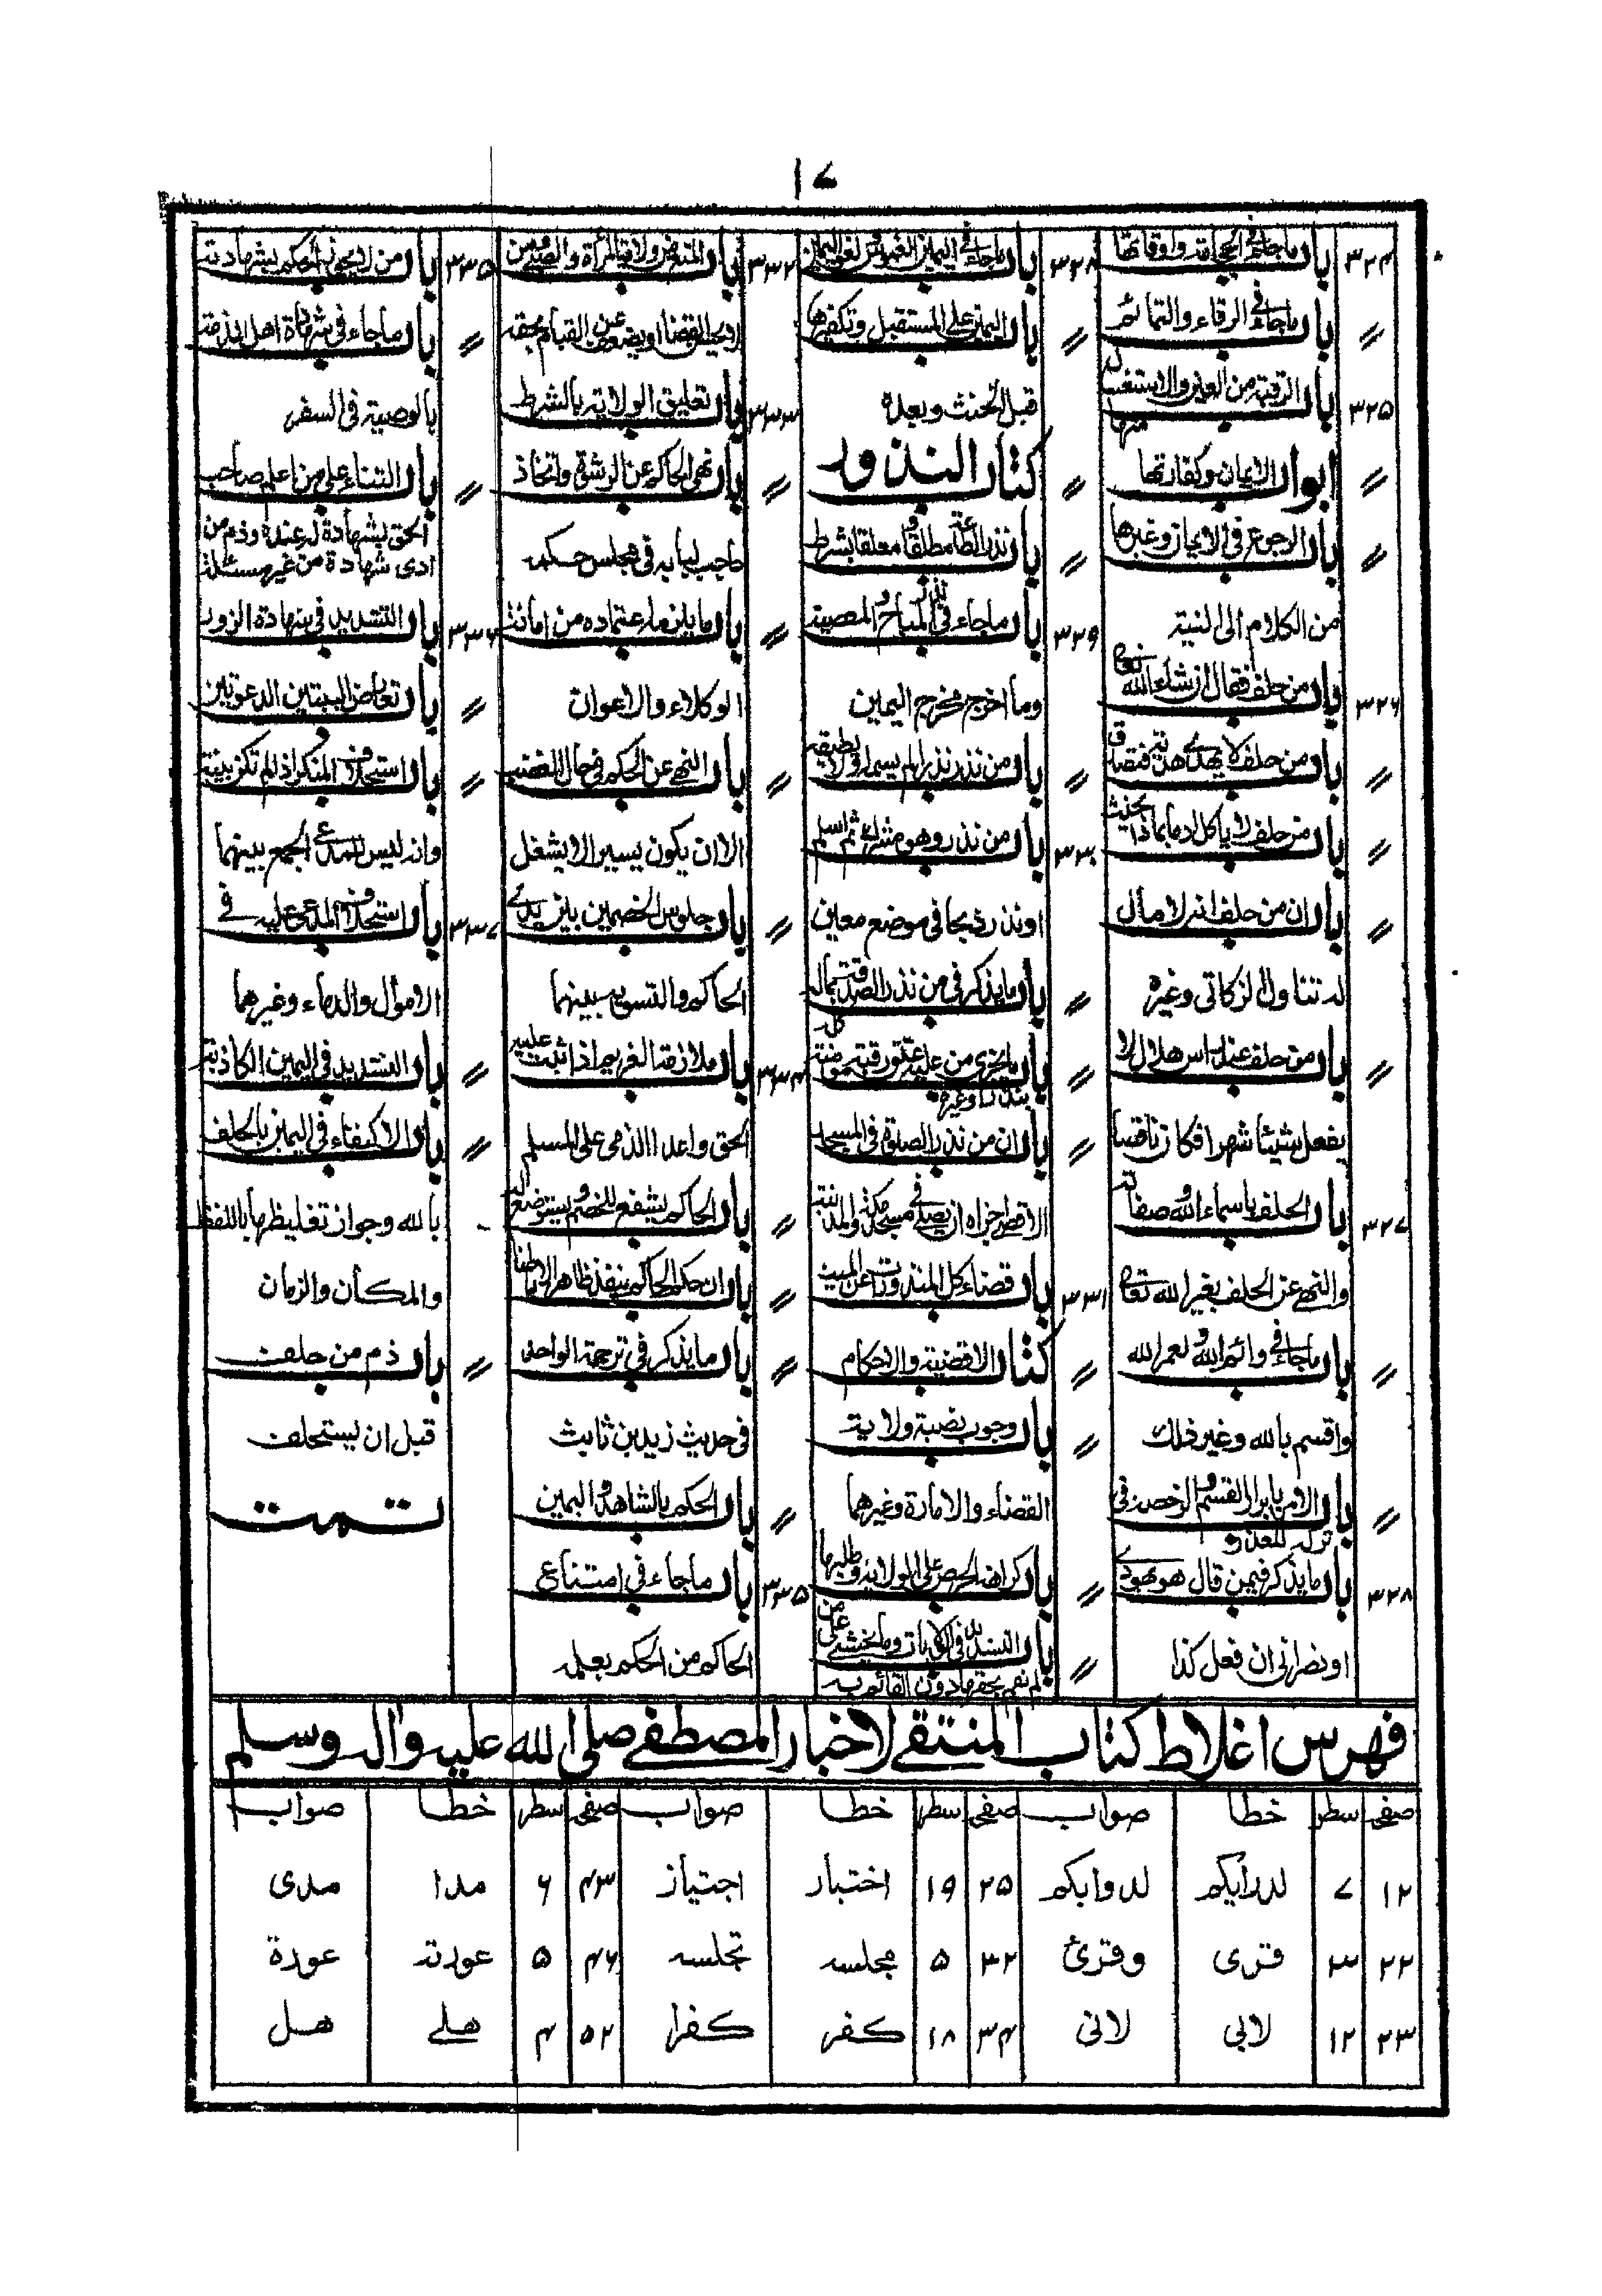 ١٧
٣٢٤ باب ماجاء في الحجامة واوقاتها
〃 باب ماجاء في الرقاء والتمائم
٣٢٥ باب الرقية من العين والاستغسال منها
〃 ابواب الايمان وكفارتها
〃 باب الرجوع في الايمان وغيرها
من الكلام الى النية
٣٢٦ باب من حلف فقال ان شاء الله تعالى
〃 باب من حلف لا يهدي هدية فتصدق
〃 باب من حلف لا ياكل ادما بماذا يحنث
〃 باب ان من حلف انه لا مال
له تناول الزكاتي وغيره
〃 باب من حلف عند راس هلال لا
يفعل شيئا شهرا فكان ناقصا
٣٢٧ باب الحلف باسماء الله وصفاته
والنهي عن الحلف بغير الله تعالى
〃 باب ماجاء في وايم الله ولعمر الله
واقسم بالله وغير ذلك
〃 باب الامر بابرار القسم والرخصة في
تركه للعذر
٣٢٨ باب ما يذكر فيمن قال هو يهودي
او نصراني ان فعل كذا
٣٢٨ باب ماجاء في اليمين الغموس ولغو اليمين
〃 باب اليمين على المستقبل وتكفيرها
قبل الحنث وبعده
〃 كتاب النذور
〃 باب نذر الطاعة مطلقا ومعلقا بشرط
٣٢٩ باب ماجاء في نذر المباح والمعصية
وما اخرج مخرج اليمين
〃 باب من نذر نذرا لم يسمه ولا يطيقه
٣٣٠ باب من نذر وهو مشرك ثم اسلم
او نذر ذبحا في موضع معين
〃 باب ما يذكر في من نذر الصدقة بماله
كله
〃 باب ما يجزي من عليه عتق رقبة مؤمنة
بنذر او غيره
〃 باب ان من نذر الصلوة في المسجد
الاقصى اجزاه ان يصلي في مسجد مكة والمدينة
٣٣١ باب قضاء كل المنذورات عن الميت
〃 كتاب الاقضية والاحكام
〃 باب وجوب نصبة ولاية
القضاء والامارة وغيرهما
〃 باب كراهة الحرص على الولاية وطلبها
〃 باب التشديد في الولايات وما يخشى على من
لم يقم بحقها دون القائم به
٣٣٢ باب المنع من ولاية المرأة والصبي ومن
لا يحسن القضا او يضعف عن القيام بحقه
٣٣٣ باب تعليق الولاية بالشرط
〃 باب نهي الحاكم عن الرشوة واتخاذ
حاجب لبابه في مجلس حكمه
〃 باب ما يلزمه اعتماده من امانة
الوكلاء والاعوان
〃 باب النهي عن الحكم في حال الغضب
الا ان يكون يسيرا لا يشغل
〃 باب جلوس الخصمين بين يدي
الحاكم والتسوية بينهما
٣٣٤ باب ملازمة الغريم اذا ثبت عليه
الحق واعداا الذمي على المسلم
〃 باب الحاكم يشفع للخصم ويستوضع له
〃 باب ان حكم الحاكم ينفذ ظاهرا لا باطنا
〃 باب ما يذكر في ترجمة الواحد
في حديث زيد بن ثابت
〃 باب الحكم بالشاهد واليمين
٣٣٥ باب ماجاء في امتناع
الحاكم من الحكم بعلمه
٣٣٥ باب من لا يجوز الحكم بشهادته
〃 باب ماجاء في شهادة اهل الذمة
بالوصية في السفر
〃 باب الثناء على من اعلم صاحب
الحق بشهادة له عنده وذم من
ادى شهادة من غير مسئلة
٣٣٦ باب التشديد في شهادة الزور
〃 باب تعارض البينتين الدعوتين
〃 باب استحلاف المنكر اذا لم تكن بينة
وانه ليس للمدعي الجمع بينهما
٣٣٧ باب استحلاف المدعى عليه في
الاموال والدماء وغيرهما
〃 باب التشديد في اليمين الكاذبة
〃 باب الاكتفاء في اليمين بالحلف
بالله وجواز تغليظها باللفظ
والمكان والزمان
〃 باب ذم من حلف
قبل ان يستحلف
تمت
فهرس اغلاط كتاب المنتقى لاخبار المصطفى صلى الله عليه واله وسلم
صفحه سطر خطا صواب صفحه سطر خطا صواب صفحه سطر خطا صواب
١٢ ٧ لدرايكم لدوابكم ٢٥ ١٩ اختبار اجتياز ٤٣ ٦ مدا مدى
٢٢ ٣ قرى وقرئ ٣٢ ٥ مجلسه تجلسه ٤٦ ٥ عورته عورة
٢٣ ١٢ لابي لاني ٣٤ ١٨ كفر كفرا ٥٢ ٤ هلي هل